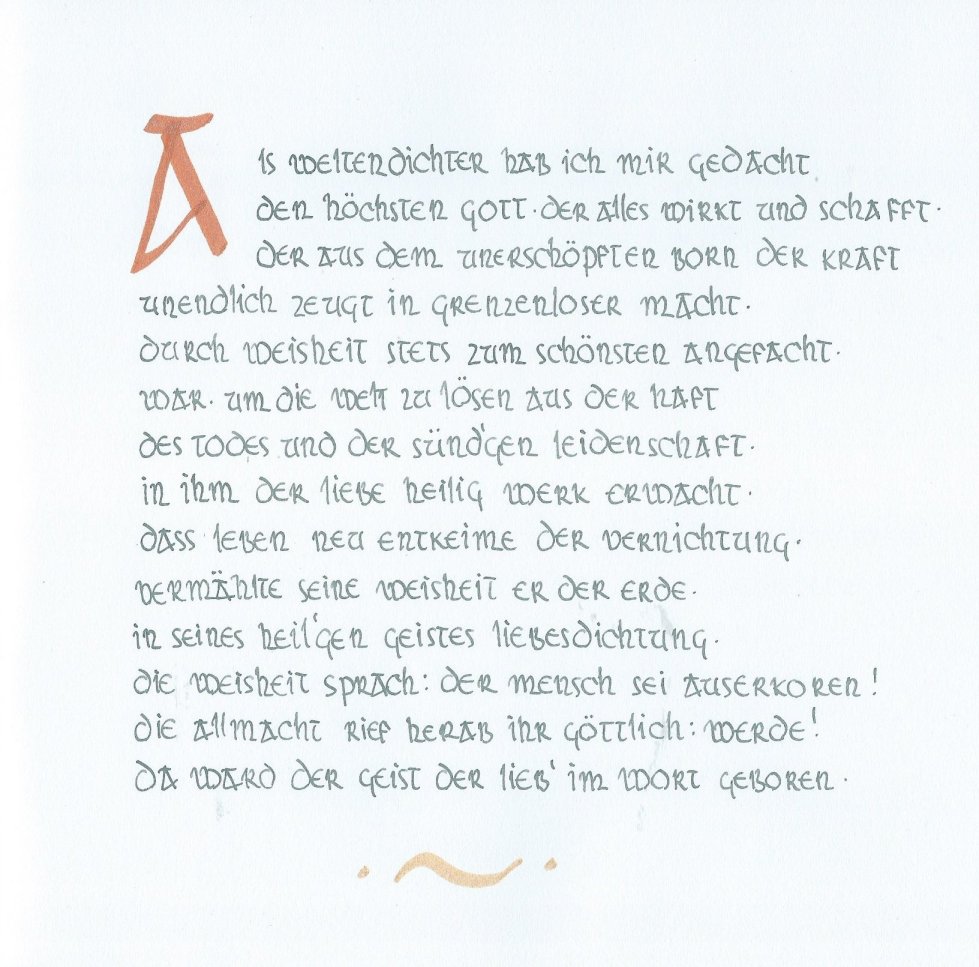 Als weltendichter hab ich mir gedacht
den höchsten gott · der alles wirkt und schafft ·
der aus dem unerschöpften born der kraft
unendlich zeugt in grenzenloser macht ·
durch weisheit stets zum schönsten angefacht ·
war · um die welt zu lösen aus der haft
des todes und der sünd'gen leidenschaft ·
in ihm der liebe heilig werk erwacht ·
dass leben neu entkeime der vernichtung ·
vermählte seine weisheit er der erde ·
in seines heil'gen geistes liebesdichtung ·
die weisheit sprach: der mensch sei auserkoren!
die allmacht rief herab ihr göttlich: werde!
da ward der geist der lieb' im wort geboren ·